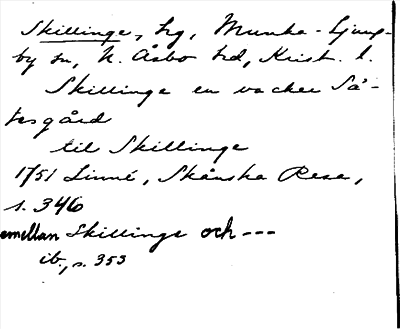 Skillinge, hg, Munka-Ljung-
by sn, N. Åsbo hd, Krist. l.
Skillinge en vacker Sä-
tesgård
til Skillinge
1751 Linné, Skånska Resa,
s. 346
emellan Skillinge och ---
ib., s. 353